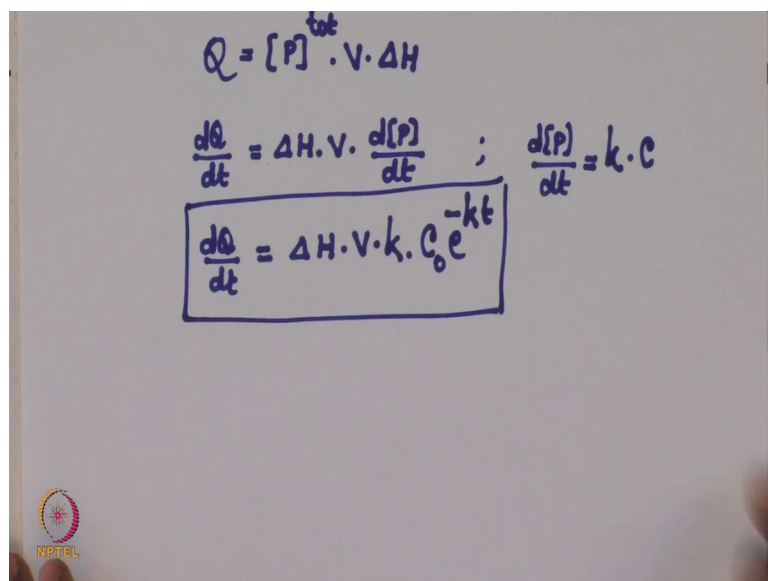 Q = [P]^tot · V · ΔH
dQ/dt = ΔH · V · d[P]/dt ; d[P]/dt = k · C
dQ/dt = ΔH · V · k · C₀ e^-kt
NPTEL